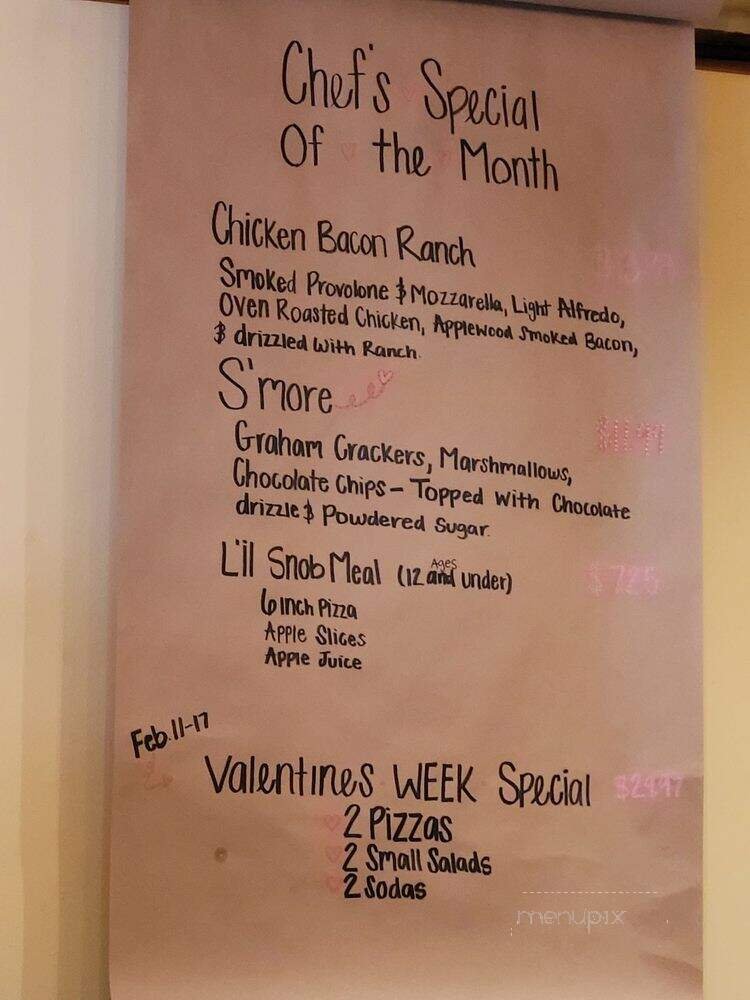 Chef's Special
Of the Month
Chicken Bacon Ranch
Smoked Provolone & Mozzarella, Light Alfredo,
Oven Roasted Chicken, Applewood Smoked Bacon,
& drizzled with Ranch.
S'more
Graham Crackers, Marshmallows,
Chocolate Chips - Topped with Chocolate
drizzle & Powdered Sugar.
L'il Snob Meal (12 Ages and under)
$7.25
6 inch Pizza
Apple Slices
Apple Juice
Feb. 11-17
Valentines WEEK Special
2 Pizzas
2 Small Salads
2 Sodas
menupix